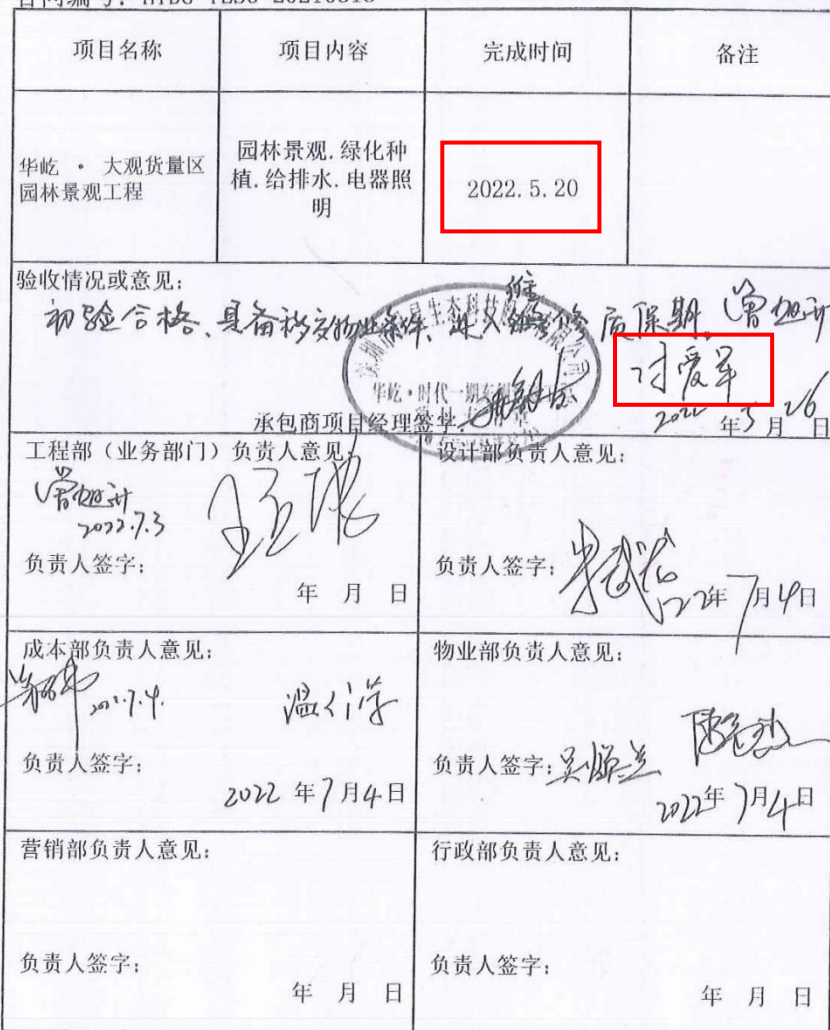 项目名称 项目内容 完成时间 备注
华屹 · 大观货量区
园林景观工程
园林景观.绿化种
植.给排水.电器照
明
2022.5.20
验收情况或意见：
初验合格、具备移交物业条件、进入 维 修 质保期、
华屹·时代一期
承包商项目经理签字
2022 年5月26日
工程部（业务部门）负责人意见：
2022.7.3
负责人签字：
年 月 日
设计部负责人意见：
负责人签字：
22年 7月4日
成本部负责人意见：
7.4.
负责人签字：
2022 年7月4日
物业部负责人意见：
负责人签字：
2022年 7月4日
营销部负责人意见：
负责人签字：
年 月 日
行政部负责人意见：
负责人签字：
年 月 日